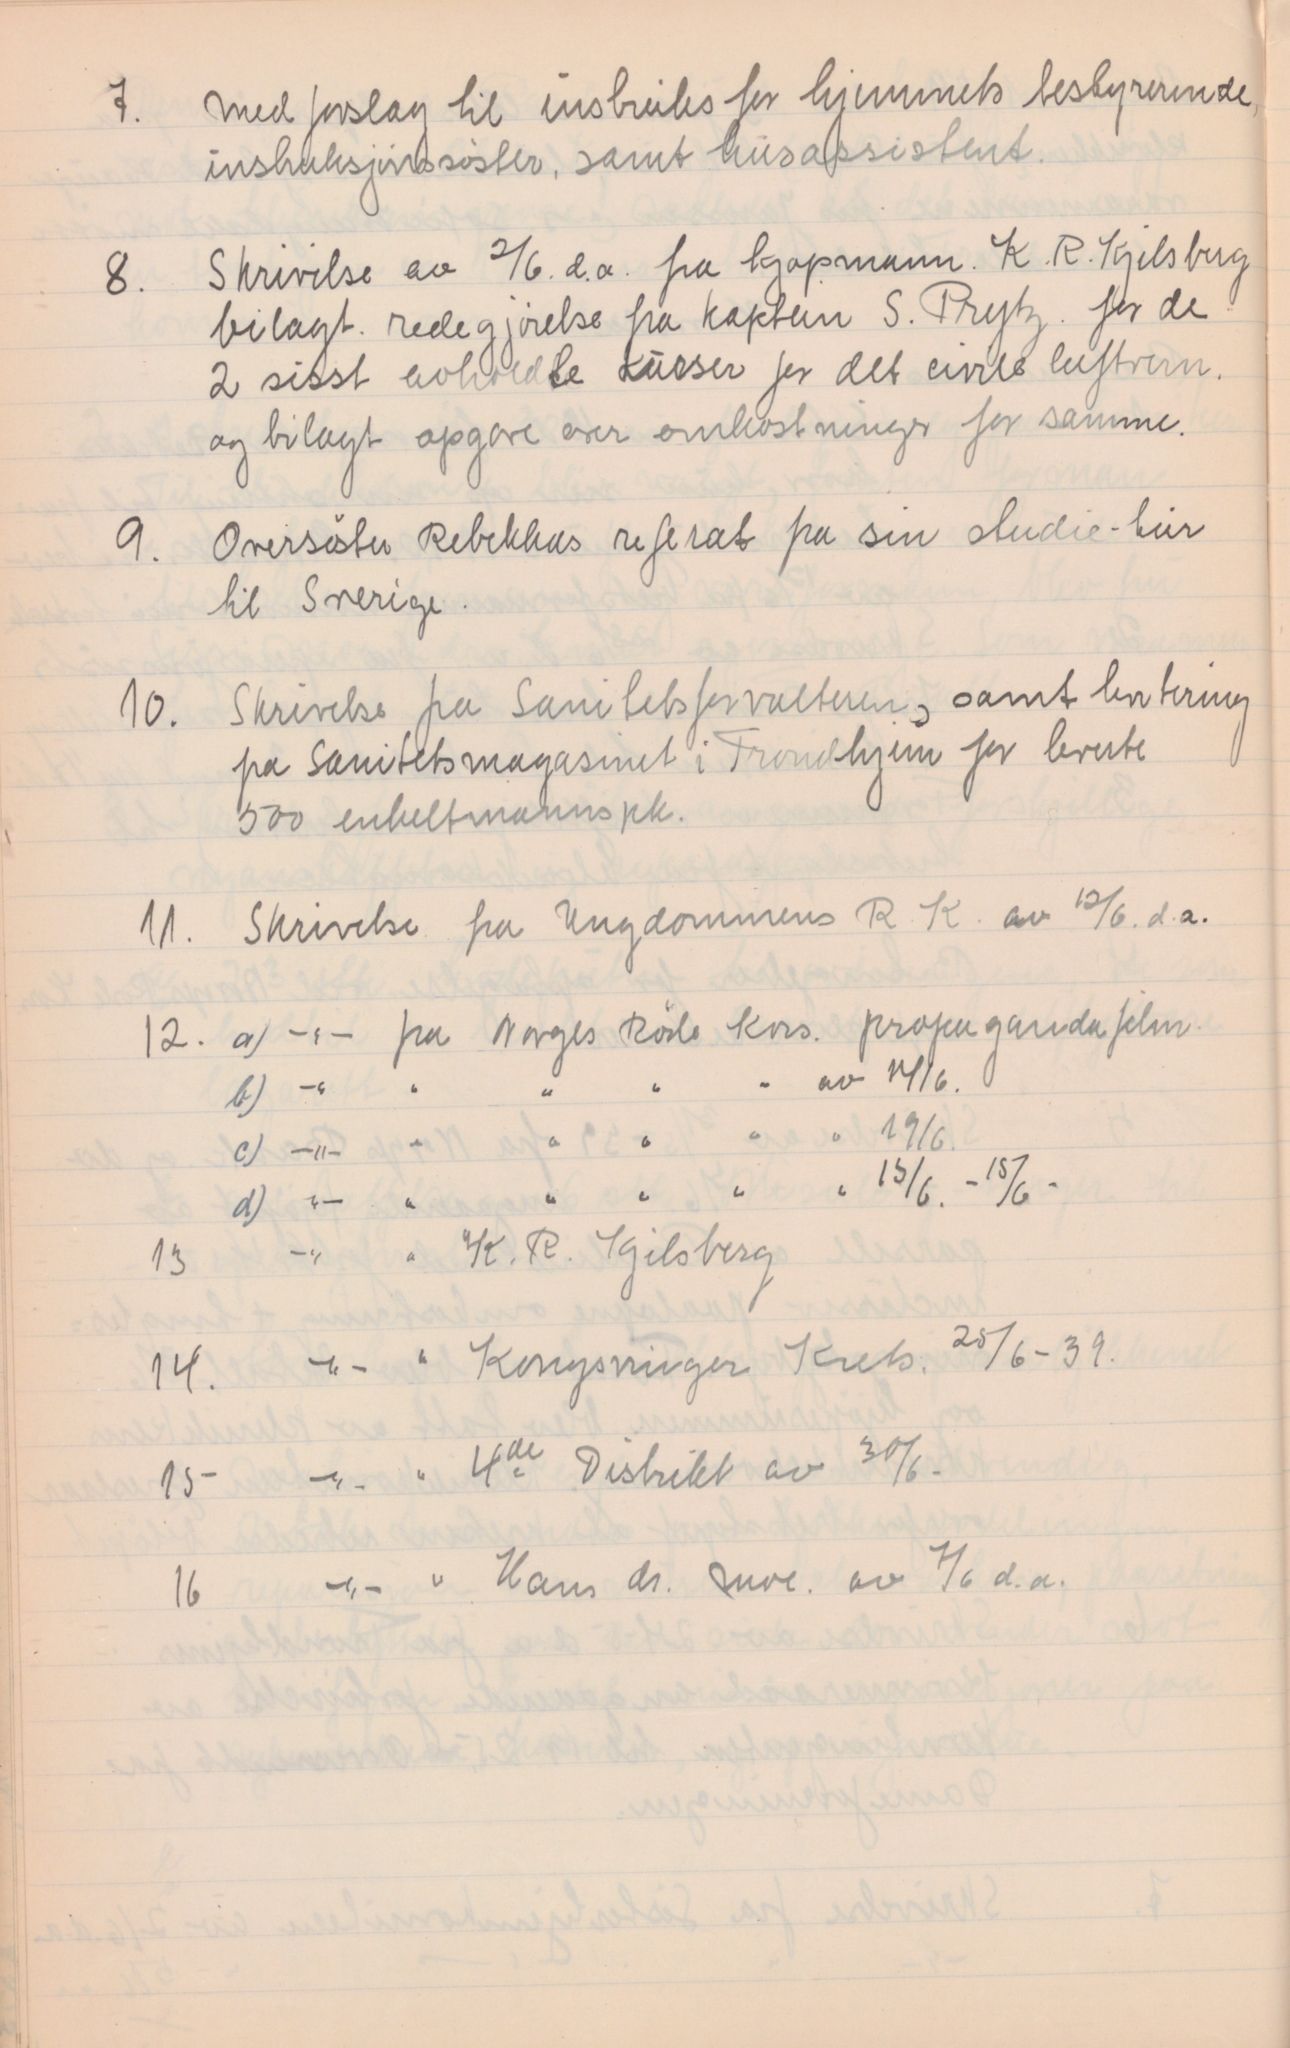 7. med forslag til instruks for hjemmets bestyrerinde,
instruksjonssøster, samt husassistent.
8. Skrivelse av 2/6. d.a. fra kjøpmann. K. R. Kjilsberg
bilagt. redegjørelse fra kaptein S. Prytz. for de
2 sisst avholdte kurser for det civile luftvern.
og bilagt opgave over omkostninger for samme.
9. Oversøster Rebekkas referat fra sin studie-tur
til Sverige.
10. Skrivelse fra Sanitetsforvalteren, samt kvitering
fra Sanitetsmagasinet i Trondhjem for leverte
500 enkeltmannspk.
11. Skrivelse fra Ungdommens R. K. av 12/6. d.a.
12. a) -"- fra Norges Røde Kors. propagandafilm.
b) -" " " " " av 14/6.
c) -"- " " " " " 19/6.
d) "- " " " " " 13/6. - 15/6 -
13 -" " K. R. Kjilsberg
14. -"- " Kongsvinger Krets. 25/6 - 39.
15 - -"- " 4de Distrikt av 30/6 -
16 -"- " Hans dr. Moe. av 7/6 d.a.